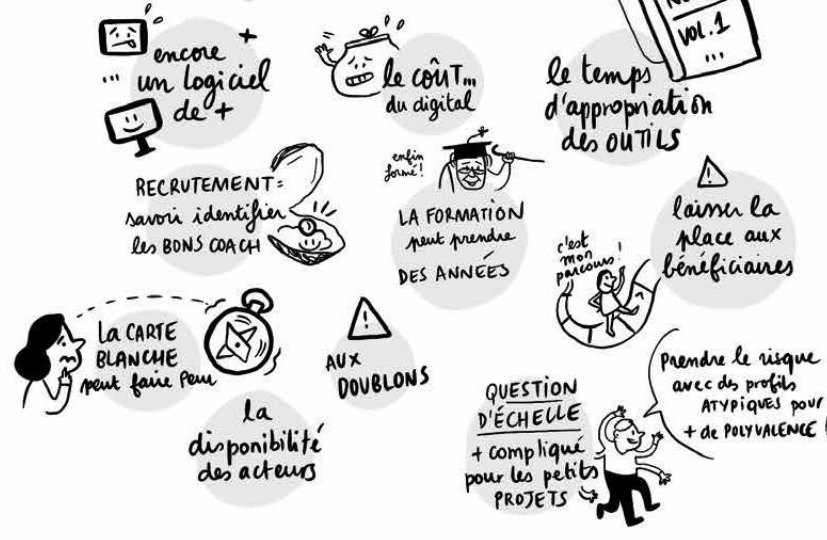 encore
un logiciel
de +
le coûT...
du digital
VOL.1
...
le temps
d'appropriation
des OUTILS
RECRUTEMENT :
savoir identifier
les BONS COACH
enfin
formé !
LA FORMATION
peut prendre
DES ANNÉES
c'est
mon
parcours !
laisser la
place aux
bénéficiaires
La CARTE
BLANCHE
peut faire Peur
AUX
DOUBLONS
la
disponibilité
des acteurs
QUESTION
D'ÉCHELLE
+ compliqué
pour les petits
PROJETS
Prendre le risque
avec des profils
ATYPIQUES pour
+ de POLYVALENCE !